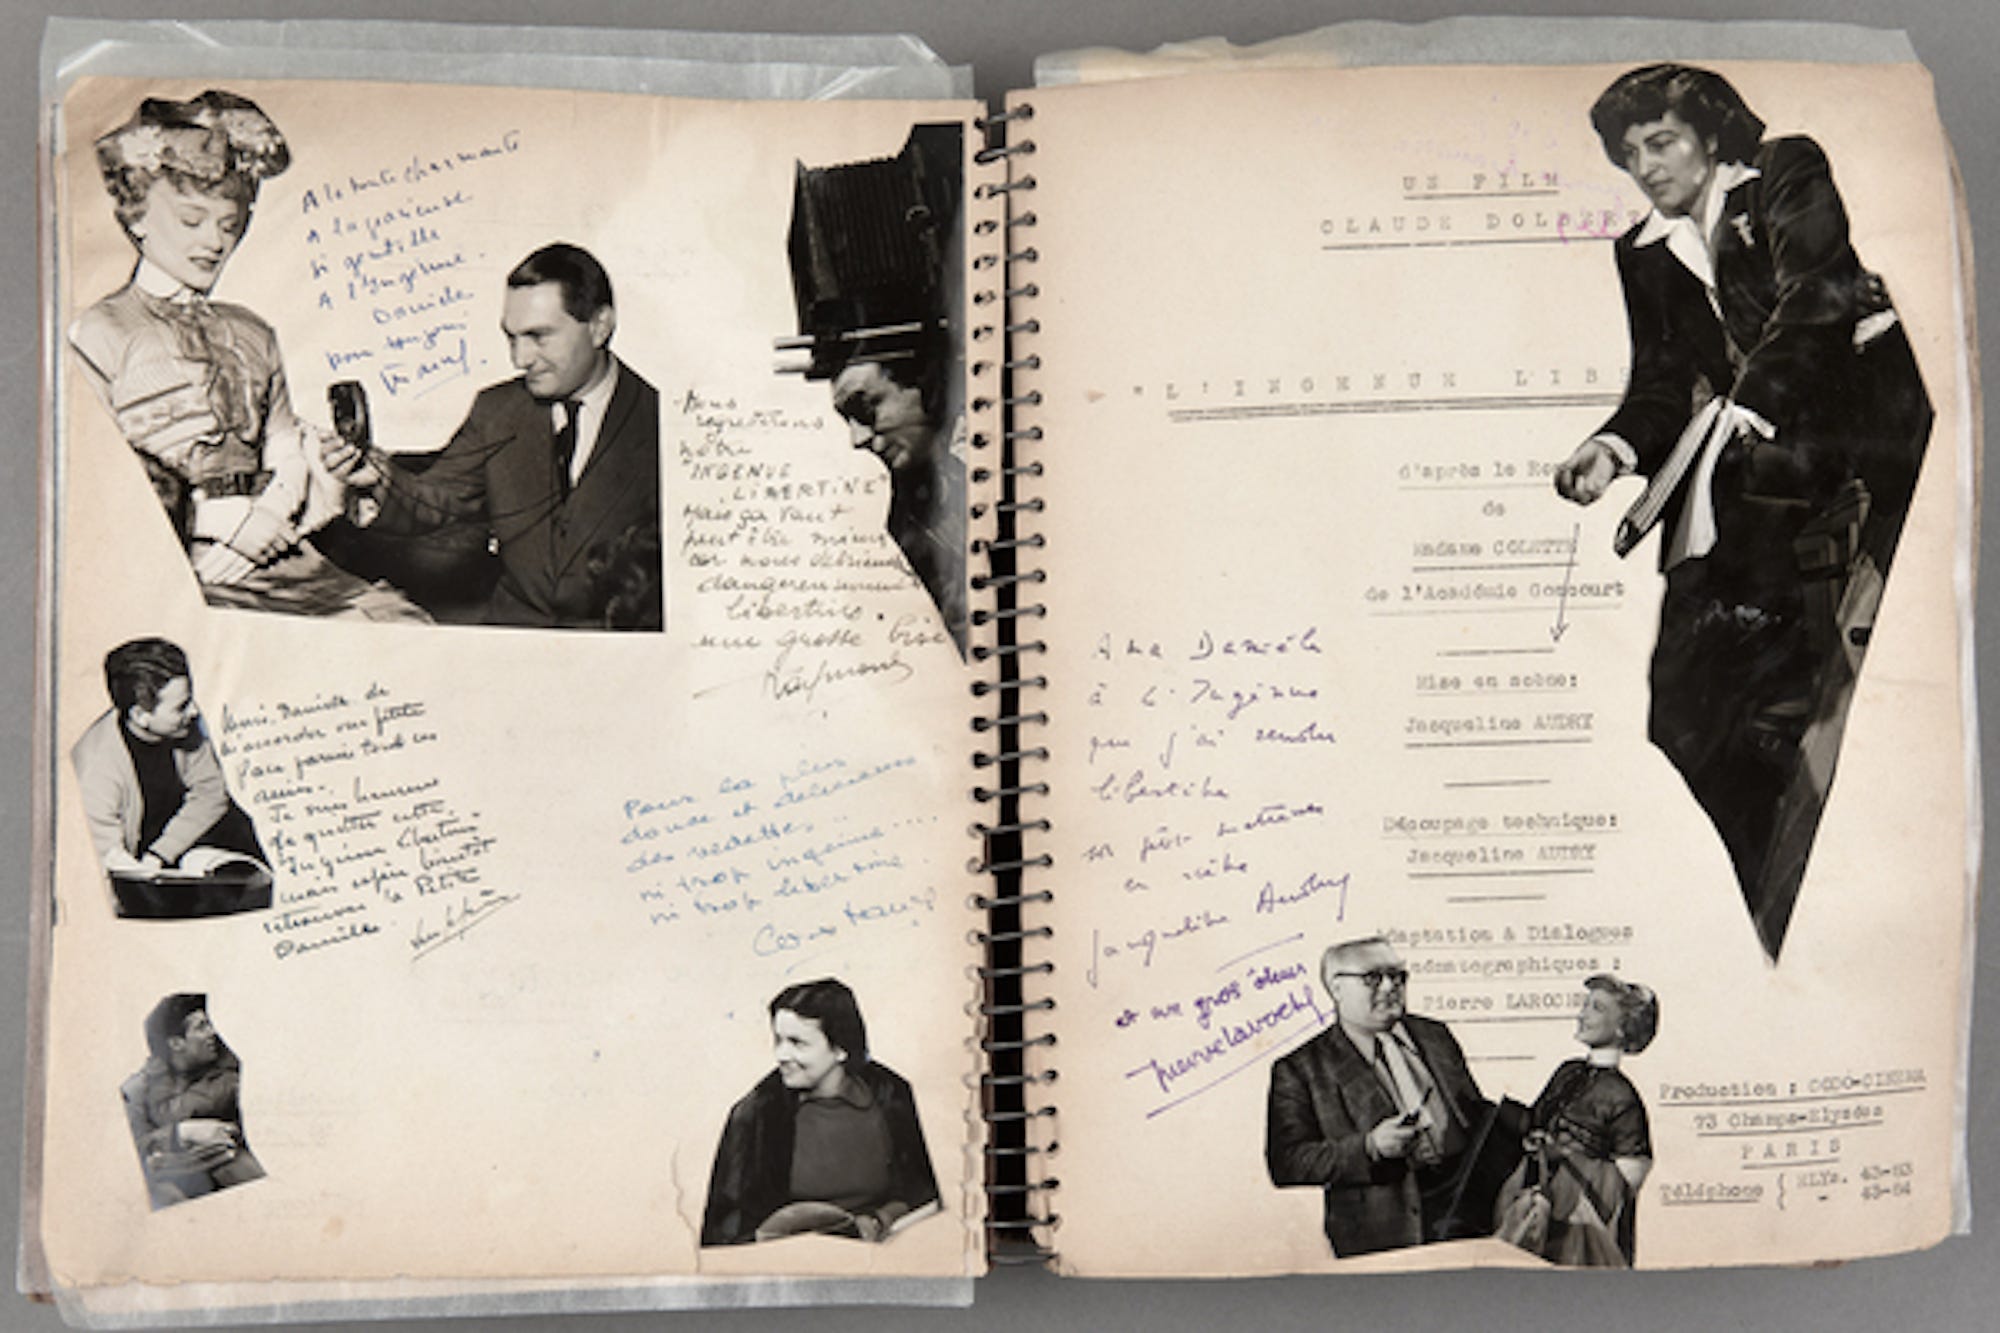 A la toute charmante
A la
si gentille
A l'Ingénue.
Daniele
pour toujours
Nous
regretterons
notre
"INGENUE
LIBERTINE"
Mais ça vaut
peut être mieux
car nous
dangereusement
libertins.
une grosse bise
Raymond
Merci Danièle de
m'accorder une petite
place parmi tous ces
amis.
Je suis
de quitter cette
"Ingénue Libertine"
mais espère bientôt
retrouver la Petite
Danièle.
Pour la plus
douce et délicieuse
des vedettes...
ni trop ingénue....
ni trop libertine.
UN FILM
CLAUDE DOLBERT
"L'INGENUE LIB
d'après le Ro
de
Madame COLETTE
de l'Académie Goncourt
Mise en scène:
Jacqueline AUDRY
Découpage technique:
Jacqueline AUDRY
Adaptation & Dialogues
Cinématographiques :
Pierre LAROCHE
Production : CODO-CINEMA
73 Champs-Elysées
PARIS
Téléphone { ELYs. 43-83
- 43-84
A ma Danièle
à l'Ingénue
que j'ai rendue
libertine
son metteuse
en scène
Jacqueline Audry
et un gros
Pierre Laroche